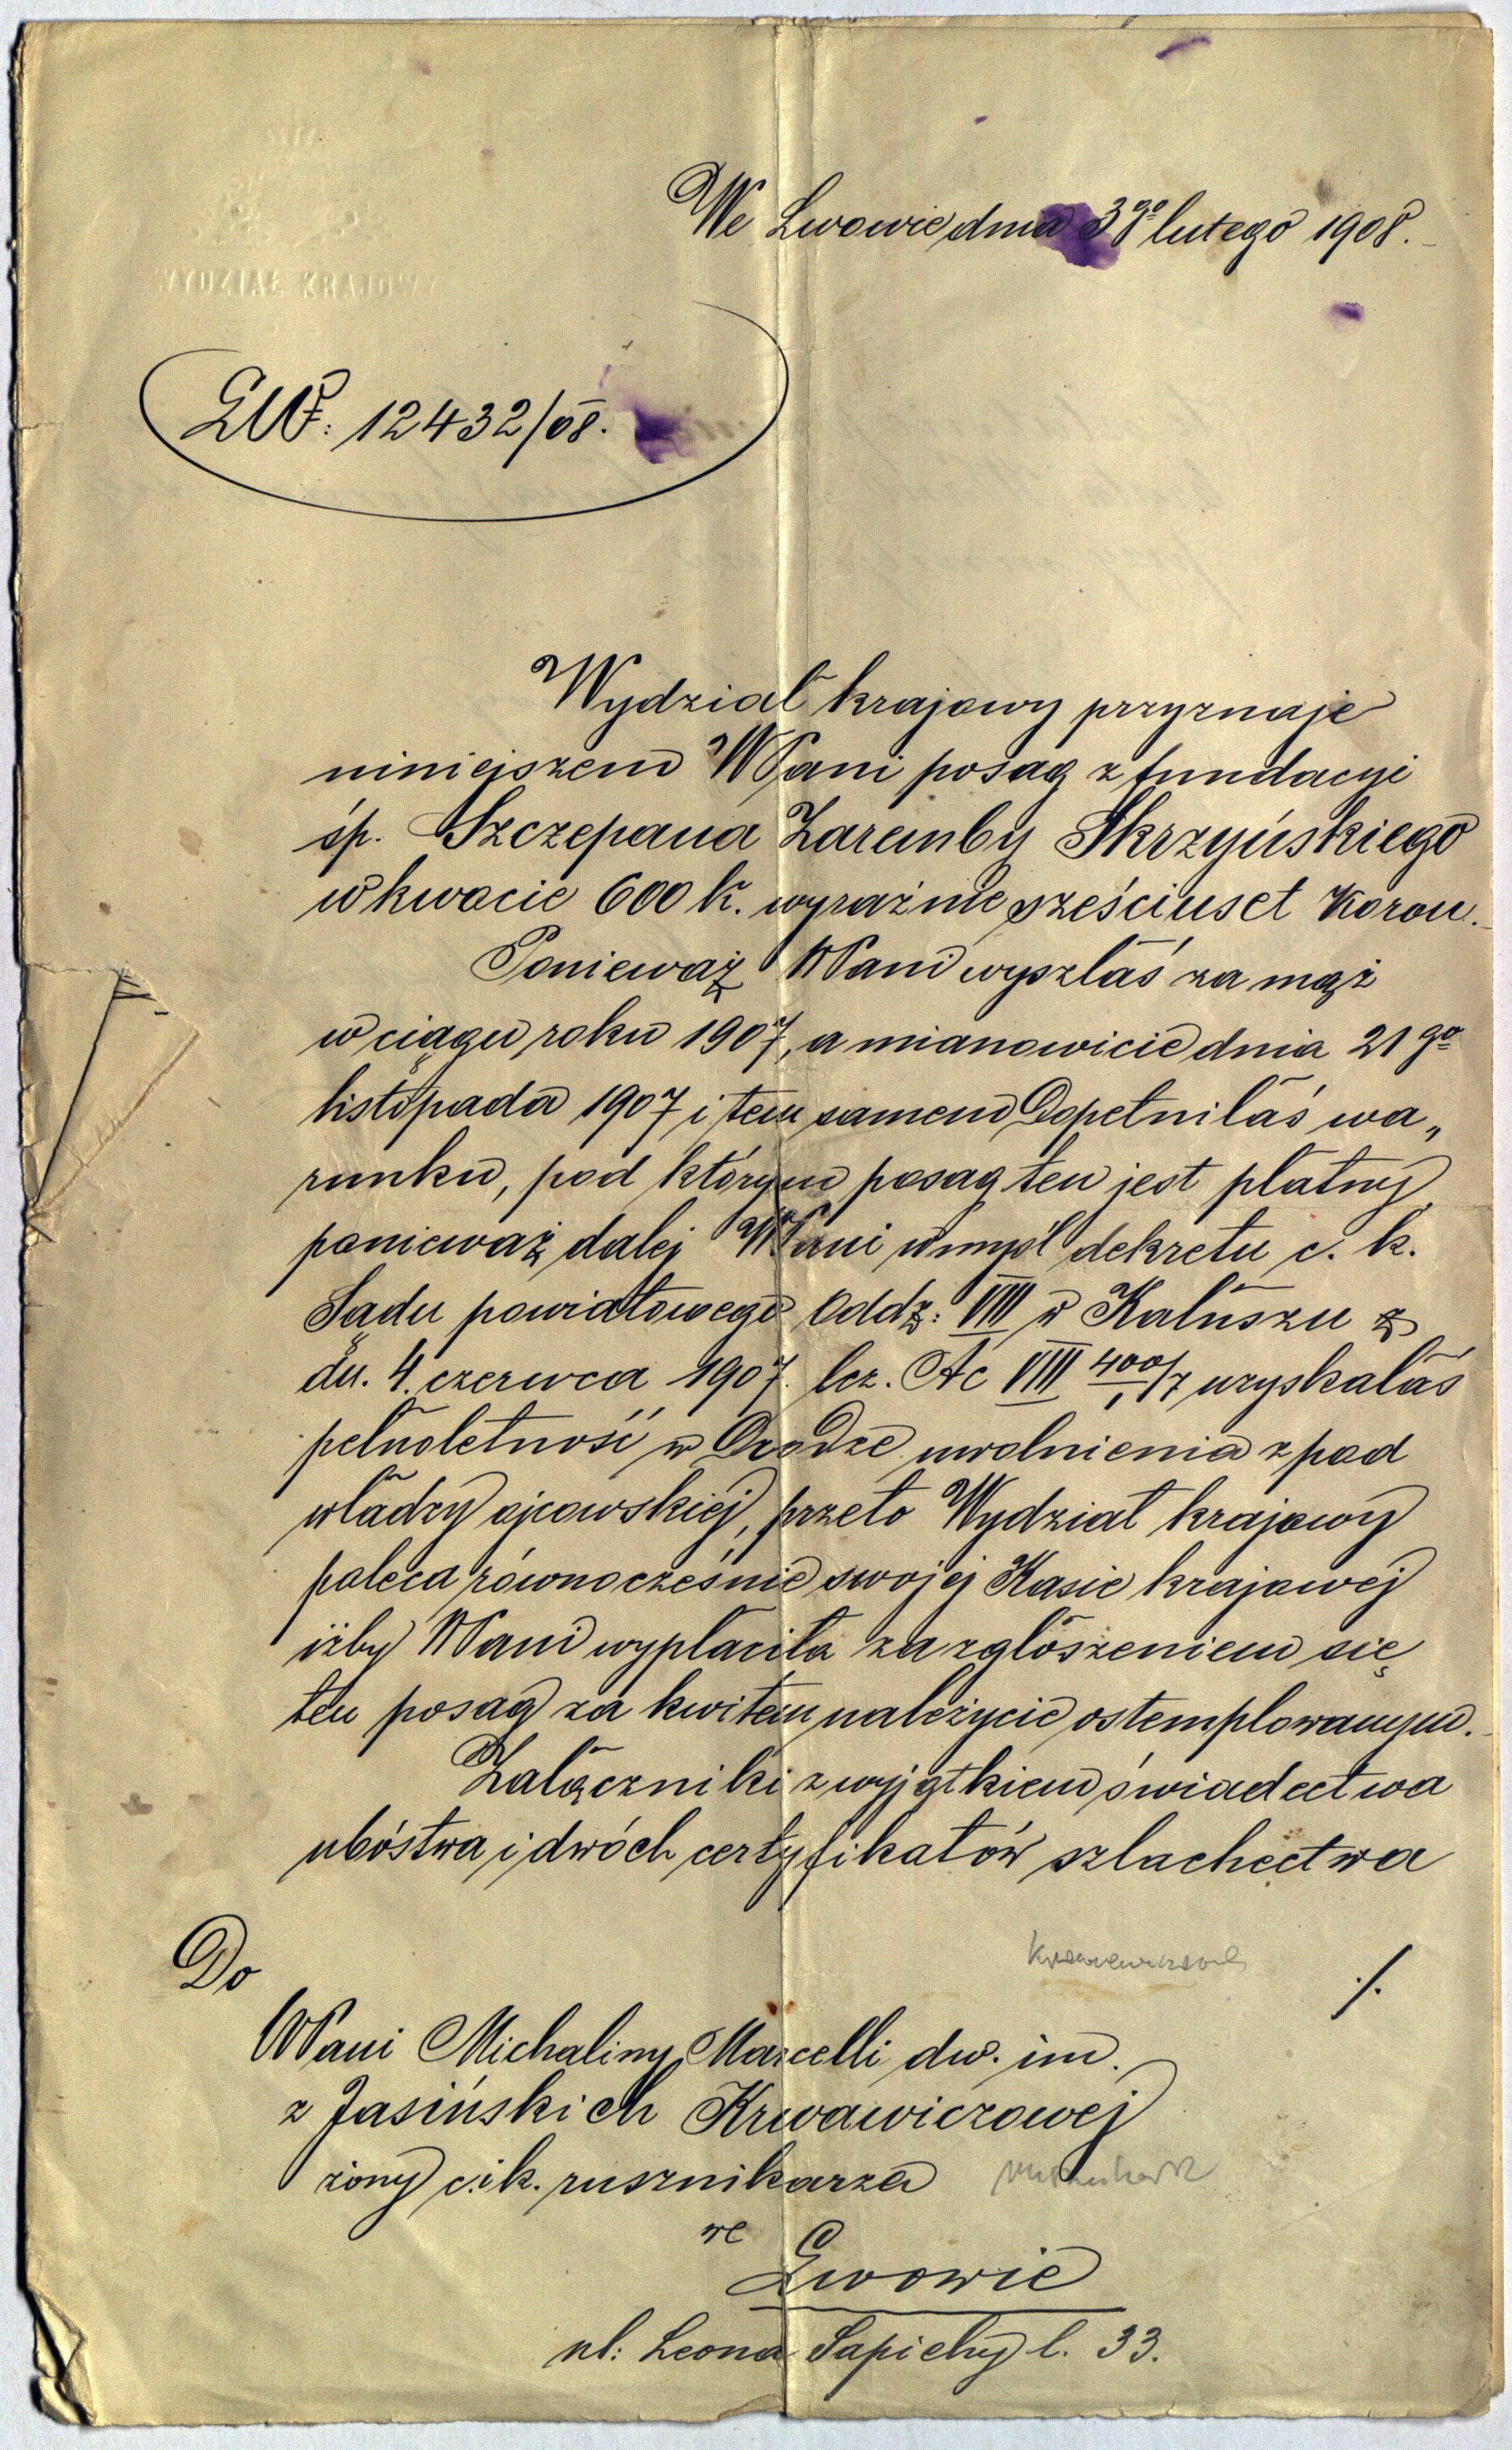 We Lwowie dnia 3go lutego 1908.
WYDZIAŁ KRAJOWY
LW: 12432/08.
Wydział krajowy przyznaje
niniejszem WPani posag z fundacyi
śp. Szczepana Zaremby Skrzyńskiego
w kwocie 600 K. wyraźnie sześciuset Koron.
Ponieważ WPani wyszłaś za mąż
w ciągu roku 1907, a mianowicie dnia 21go
listopada 1907 i tem samem dopełniłaś wa„
runku, pod którym posag ten jest płatny,
ponieważ dalej WPani w myśl dekretu c. k.
Sądu powiatowego Oddz: VIII w Kałuszu z
dn. 4. czerwca 1907. lcz. Ac VIII 400/1/7 uzyskałaś
pełnoletność w drodze uwolnienia z pod
władzy ojcowskiej, przeto Wydział krajowy
poleca równocześnie swojej Kasie krajowej
iżby WPani wypłaciła za zgłoszeniem się
ten posag za kwitem należycie ostemplowanym.
Załączniki z wyjątkiem świadectwa
ubóstwa i dwóch certyfikatów szlachectwa
./.
Do
WPani Michaliny Marcelli dw. im.
z Jasińskich Krwawiczowej
żony c. i k. rusznikarza
we
Lwowie
ul: Leona Sapiehy l. 33.